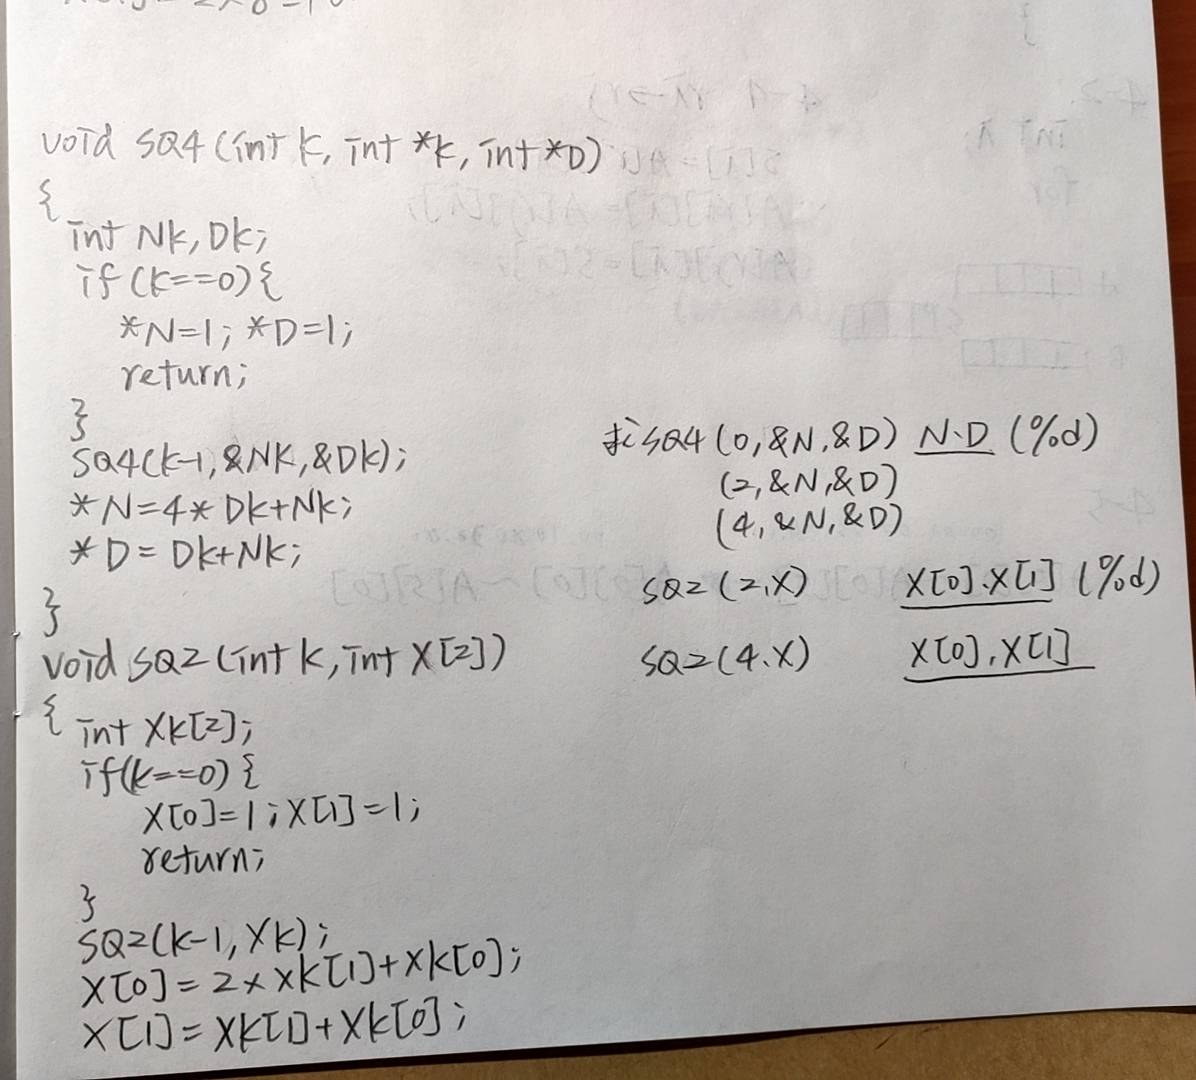 void SQ4(int k, int *k, int *D)
{
int Nk, Dk;
if (k==0){
*N=1; *D=1;
return;
}
SQ4(k-1, &Nk, &Dk);
*N=4* Dk+Nk;
*D= Dk+Nk;
}
void SQ2(int k, int X[2])
{ int Xk[2];
if(k==0){
X[0]=1; X[1]=1;
return;
}
SQ2(k-1, Xk);
X[0]=2*Xk[1]+Xk[0];
X[1]=Xk[1]+Xk[0];
求SQ4(0, &N, &D) N.D (%d)
(2, &N, &D)
(4, &N, &D)
SQ2(2.X) X[0].X[1] (%d)
SQ2(4.X) X[0], X[1]